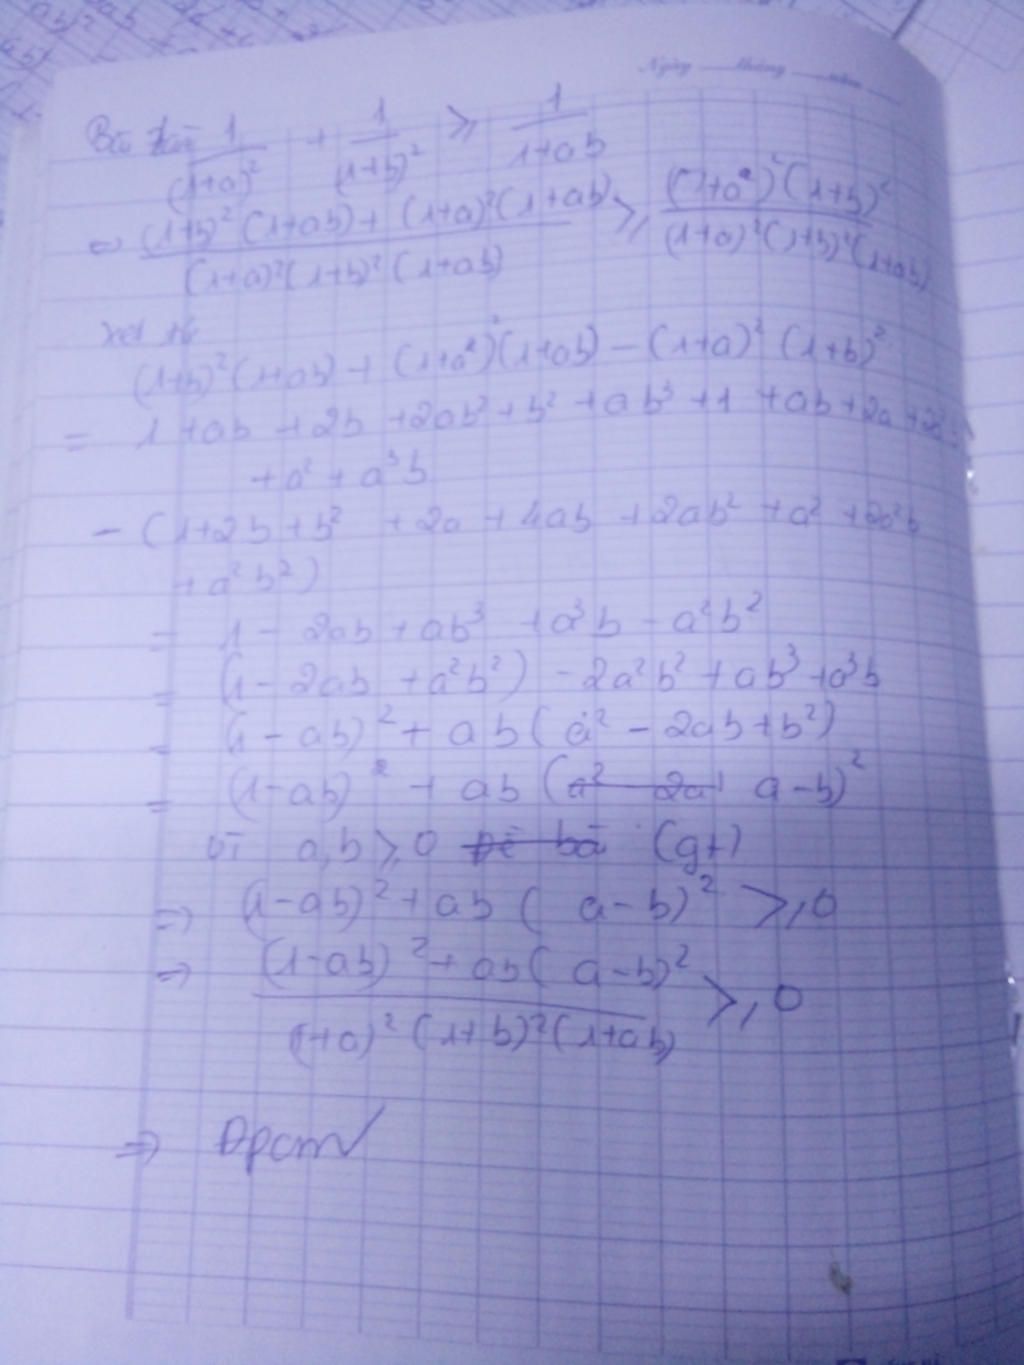 Ngày tháng năm
1/(1+a)² + 1/(1+b)² ⩾ 1/(1+ab)
⇔ ((1+b)²(1+ab) + (1+a)²(1+ab))/((1+a)²(1+b)²(1+ab)) ⩾ ((1+a)²(1+b)²)/((1+a)²(1+b)²(1+ab))
xét
(1+b)²(1+ab) + (1+a²)(1+ab) − (1+a)² (1+b)²
= 1 + ab + 2b + 2ab² + b² + ab³ + 1 + ab + 2a +
+ a² + a³b
− (1 + 2b + b² + 2a + 4ab + 2ab² + a² + 2a²b
+ a²b²)
= 1 − 2ab + ab³ + a³b − a²b²
= (1 − 2ab + a²b²) − 2a²b² + ab³ + a³b
= (1 − ab)² + ab (a² − 2ab + b²)
= (1 − ab)² + ab (a − b)²
Vì a,b ⩾ 0 (gt)
⇒ (1 − ab)² + ab (a − b)² ⩾ 0
⇒ ((1 − ab)² + ab (a − b)²)/((1+a)² (1+b)² (1+ab)) ⩾ 0
⇒ Đpcm